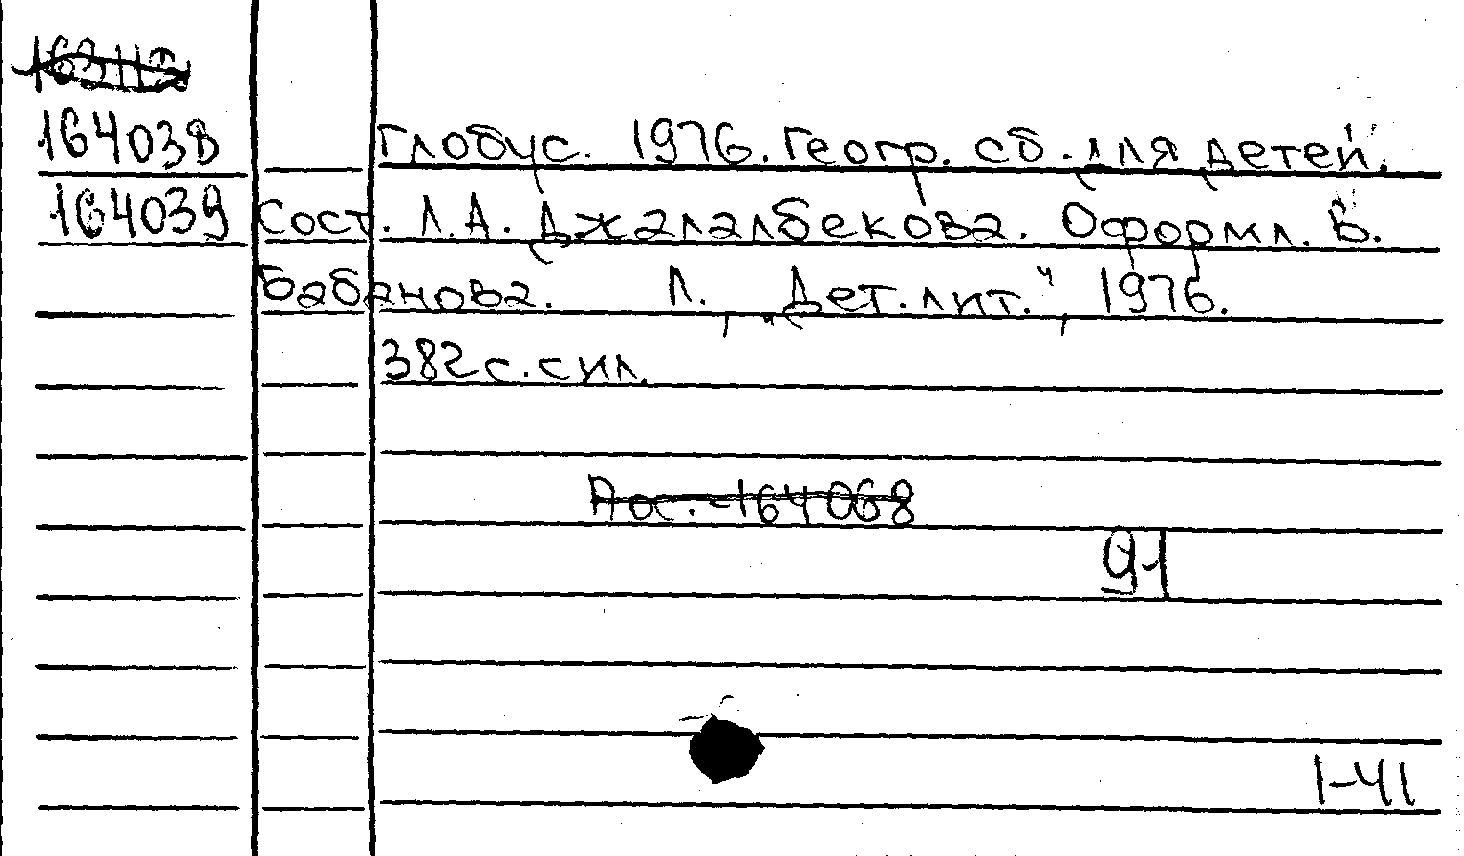 164038 Глобус. 1976. Геогр. сб. для детей.
164039 Сост. Л.А. Джалалбекова. Оформл. Б.
Бабанова. Л., „Дет. лит.", 1976.
382 с. с ил.
Пос. - 164068
91
1-41